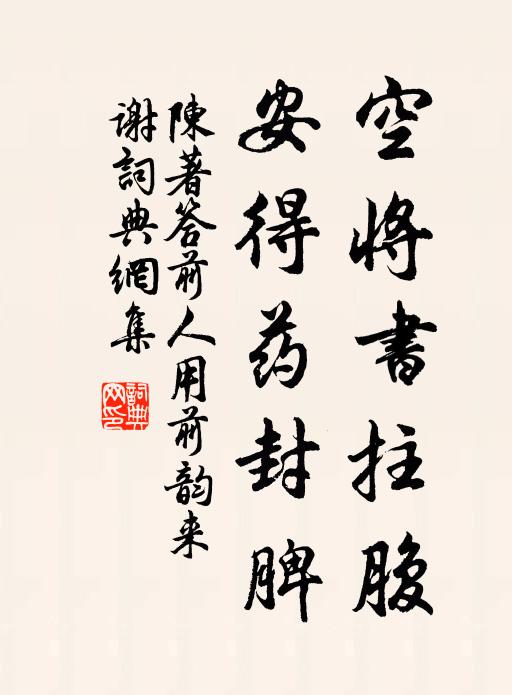 空将書拄腹
安得药封脾
陳著答前人用前韵来
謝詞典網集
詞典
网印